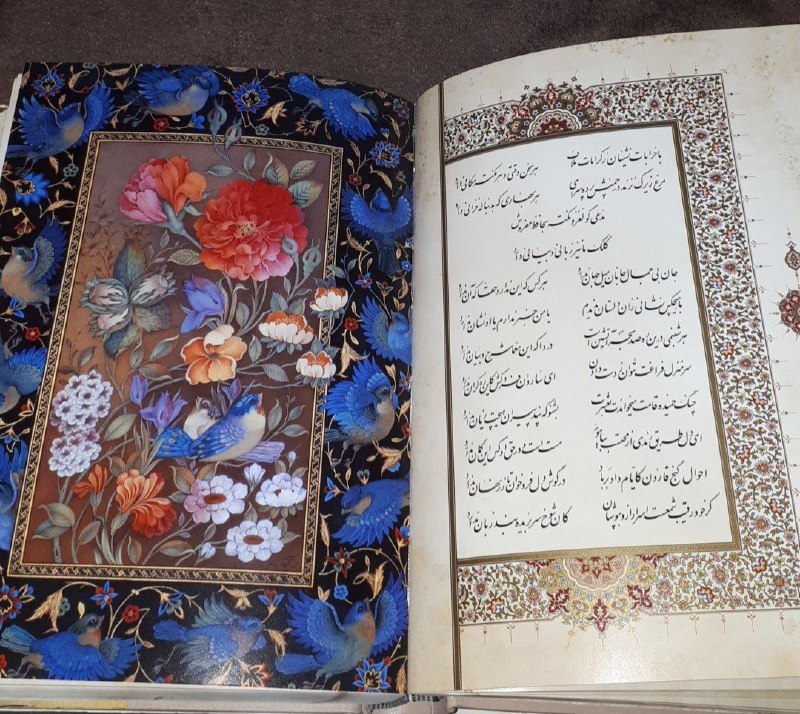 با خرابات نشینان ز کرامات ملاف هر سخن وقتی و هر نکته مکانی دارد
مرغ زیرک نزند در چمنش پرده سرای هر بهاری که به دنباله خزانی دارد
مدعی گو لغز و نکته به حافظ مفروش
کلک ما نیز زبانی و بیانی دارد
جان بی جمال جانان میل جهان ندارد هر کس که این ندارد حقا که آن ندارد
با هیچکس نشانی زان دلستان ندیدم یا من خبر ندارم یا او نشان ندارد
هر شبنمی درین ره صد بحر آتشین است دردا که این معما شرح و بیان ندارد
سرمنزل فراغت نتوان ز دست دادن ای ساروان فروکش کاین ره کران ندارد
چنگ خمیده قامت میخواندت به عشرت بشنو که پند پیران هیچت زیان ندارد
ای دل طریق رندی از محتسب بیاموز مست است و در حق او کس این گمان ندارد
احوال گنج قارون کایام داد بر باد در گوش دل فروخوان تا زر نهان ندارد
گر خود رقیب شمع است اسرار ازو بپوشان کان شوخ سربریده بند زبان ندارد